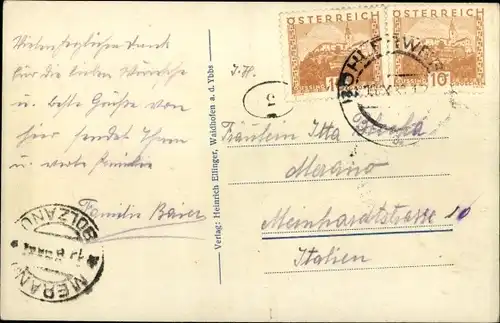 Vielen herzlichen Dank
für die lieben Wünsche
u. beste Grüße von
hier sendet Ihnen
u. werte Familie
Familie Baier
MERANO
BOLZANO
Verlag: Heinrich Ellinger, Waidhofen a. d. Ybbs
I.H.
2
ÖSTERREICH
10
ÖSTERREICH
10
BÖHLERWERK
Fräulein Itta
Merano
Meinhardtstrasse 10
Italien